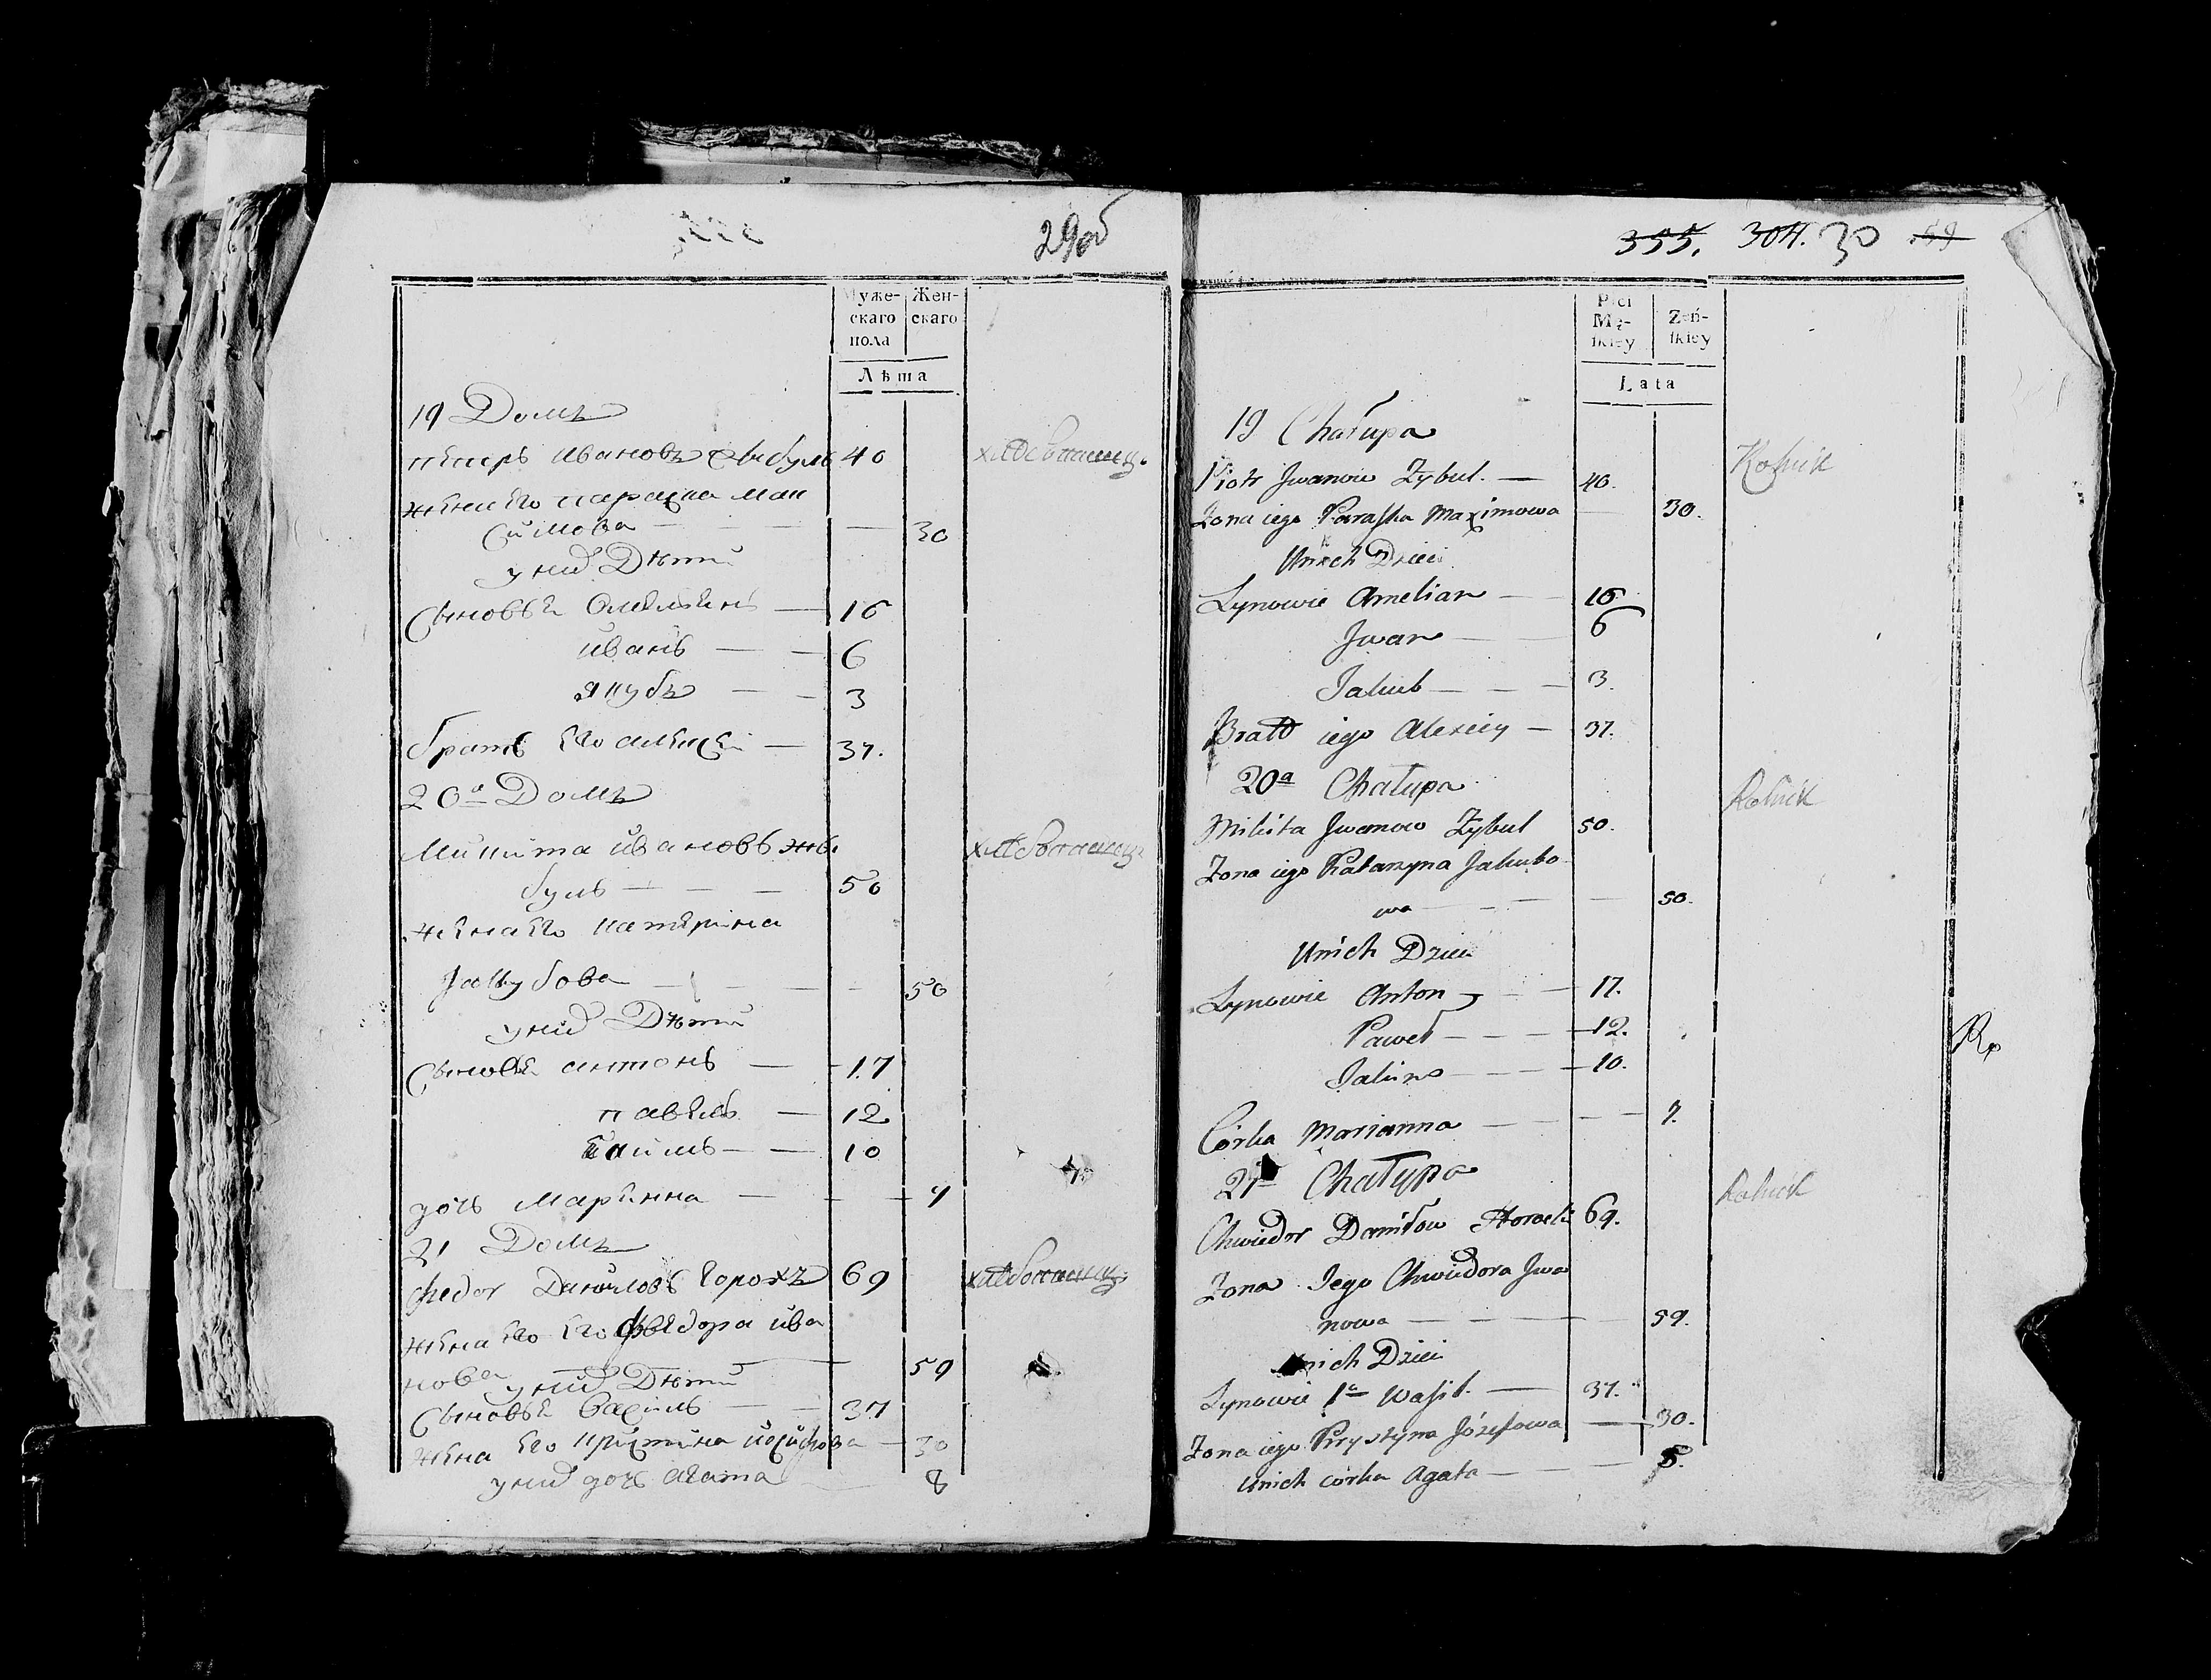 29об
Муже-
скаго
пола
Жен-
скаго
Лѣта
19 Домъ
петръ Ивановъ Жибуль 40 хлебопашец
жена Его параска Мак
симова — — — 30
у них Дѣти
Сыновья Омельянъ — 16
иванъ — — 6
якубъ — — 3
братъ Его алексей — 37.
20а Домъ
Микита ивановъ жи хлебопашец
буль — — — 50
жена Его катерина
Jакубова — — — 50
у них Дѣти
Сыновья антонъ — 17
павелъ — 12
Якимъ — — 10
дочь Марянна — — 7
21 Домъ
федor Даниловъ Горохъ 69 хлебопашец
жена Его Его Фведора ива
нова — 59
у них Дѣти
Сыновья василь — — 37
жена Его кристина йосифова — 30
у них дочь агата — 8
355. 304. 30 59
Płci
Mę-
ſkiey
Zeń-
ſkiey
Lata
19 Chałupa
Piotr Jwanow Zybul. — 40. Rolnik
Zona iego Paraſka Maximowa — 30.
Unich Dzieci
Synowie Omelian — 16
Jwan — 6
Jakub — — 3.
Bratt iego Alexiey — 37.
20a Chałupa Rolnik
Mikita Jwanow Zybul 50.
Zona iego Katarzyna Jakubo
wa — — — 50.
Unich Dzieci
Synowie Anton — — 17.
Paweł — — — 12.
Jakim — — — 10.
Córka Marianna — — — 7.
21a Chałupa Rolnik
Chwiedor Daniłow Horoch 69.
Zona Jego Chwiedora Jwa
nowa — — — 59.
Unich Dzieci
Synowie 1o Waſil. — 37.
Zona iego Krystyna Józefowa — 30.
Unich córka Agata — — — 8.